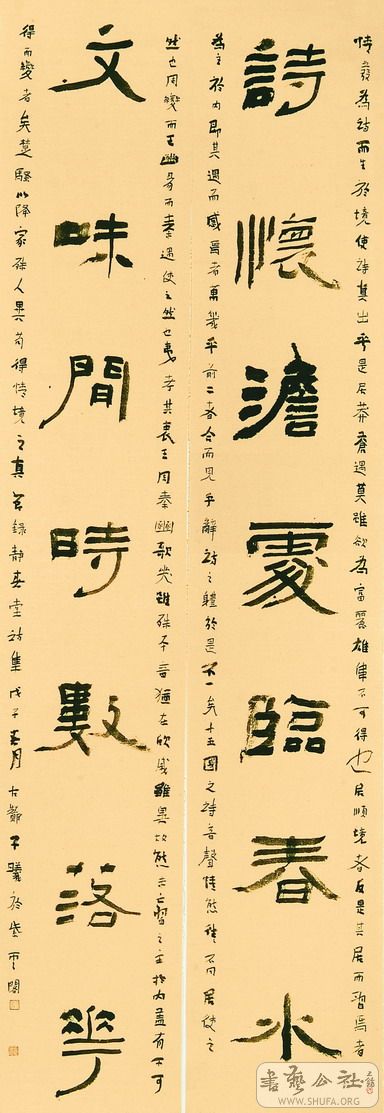 情發為詩而生於境使詩真出乎是居莽蒼遇莫雖欲為富麗雄偉不可得也居順境者反是其居而習焉者
詩懷澹處臨春水
為主於內即其遇而感焉者萬幾乎前二者合而見乎辭詩之體於是不一矣十五國之詩音聲情態殊不同居使之
然也周變而王豳易而秦遇使之然也夷考其衷王周秦豳歌哭雖殊本音猶在欣戚雖異故態未亡習之主於內蓋有不可
文味閒時數落花
得而變者矣楚騷以降家殊人異苟得情境之真 錄靜春堂詩集 戊子春月 古鄮 曦於紫雲閣
書藝公社
WWW.SHUFA.ORG